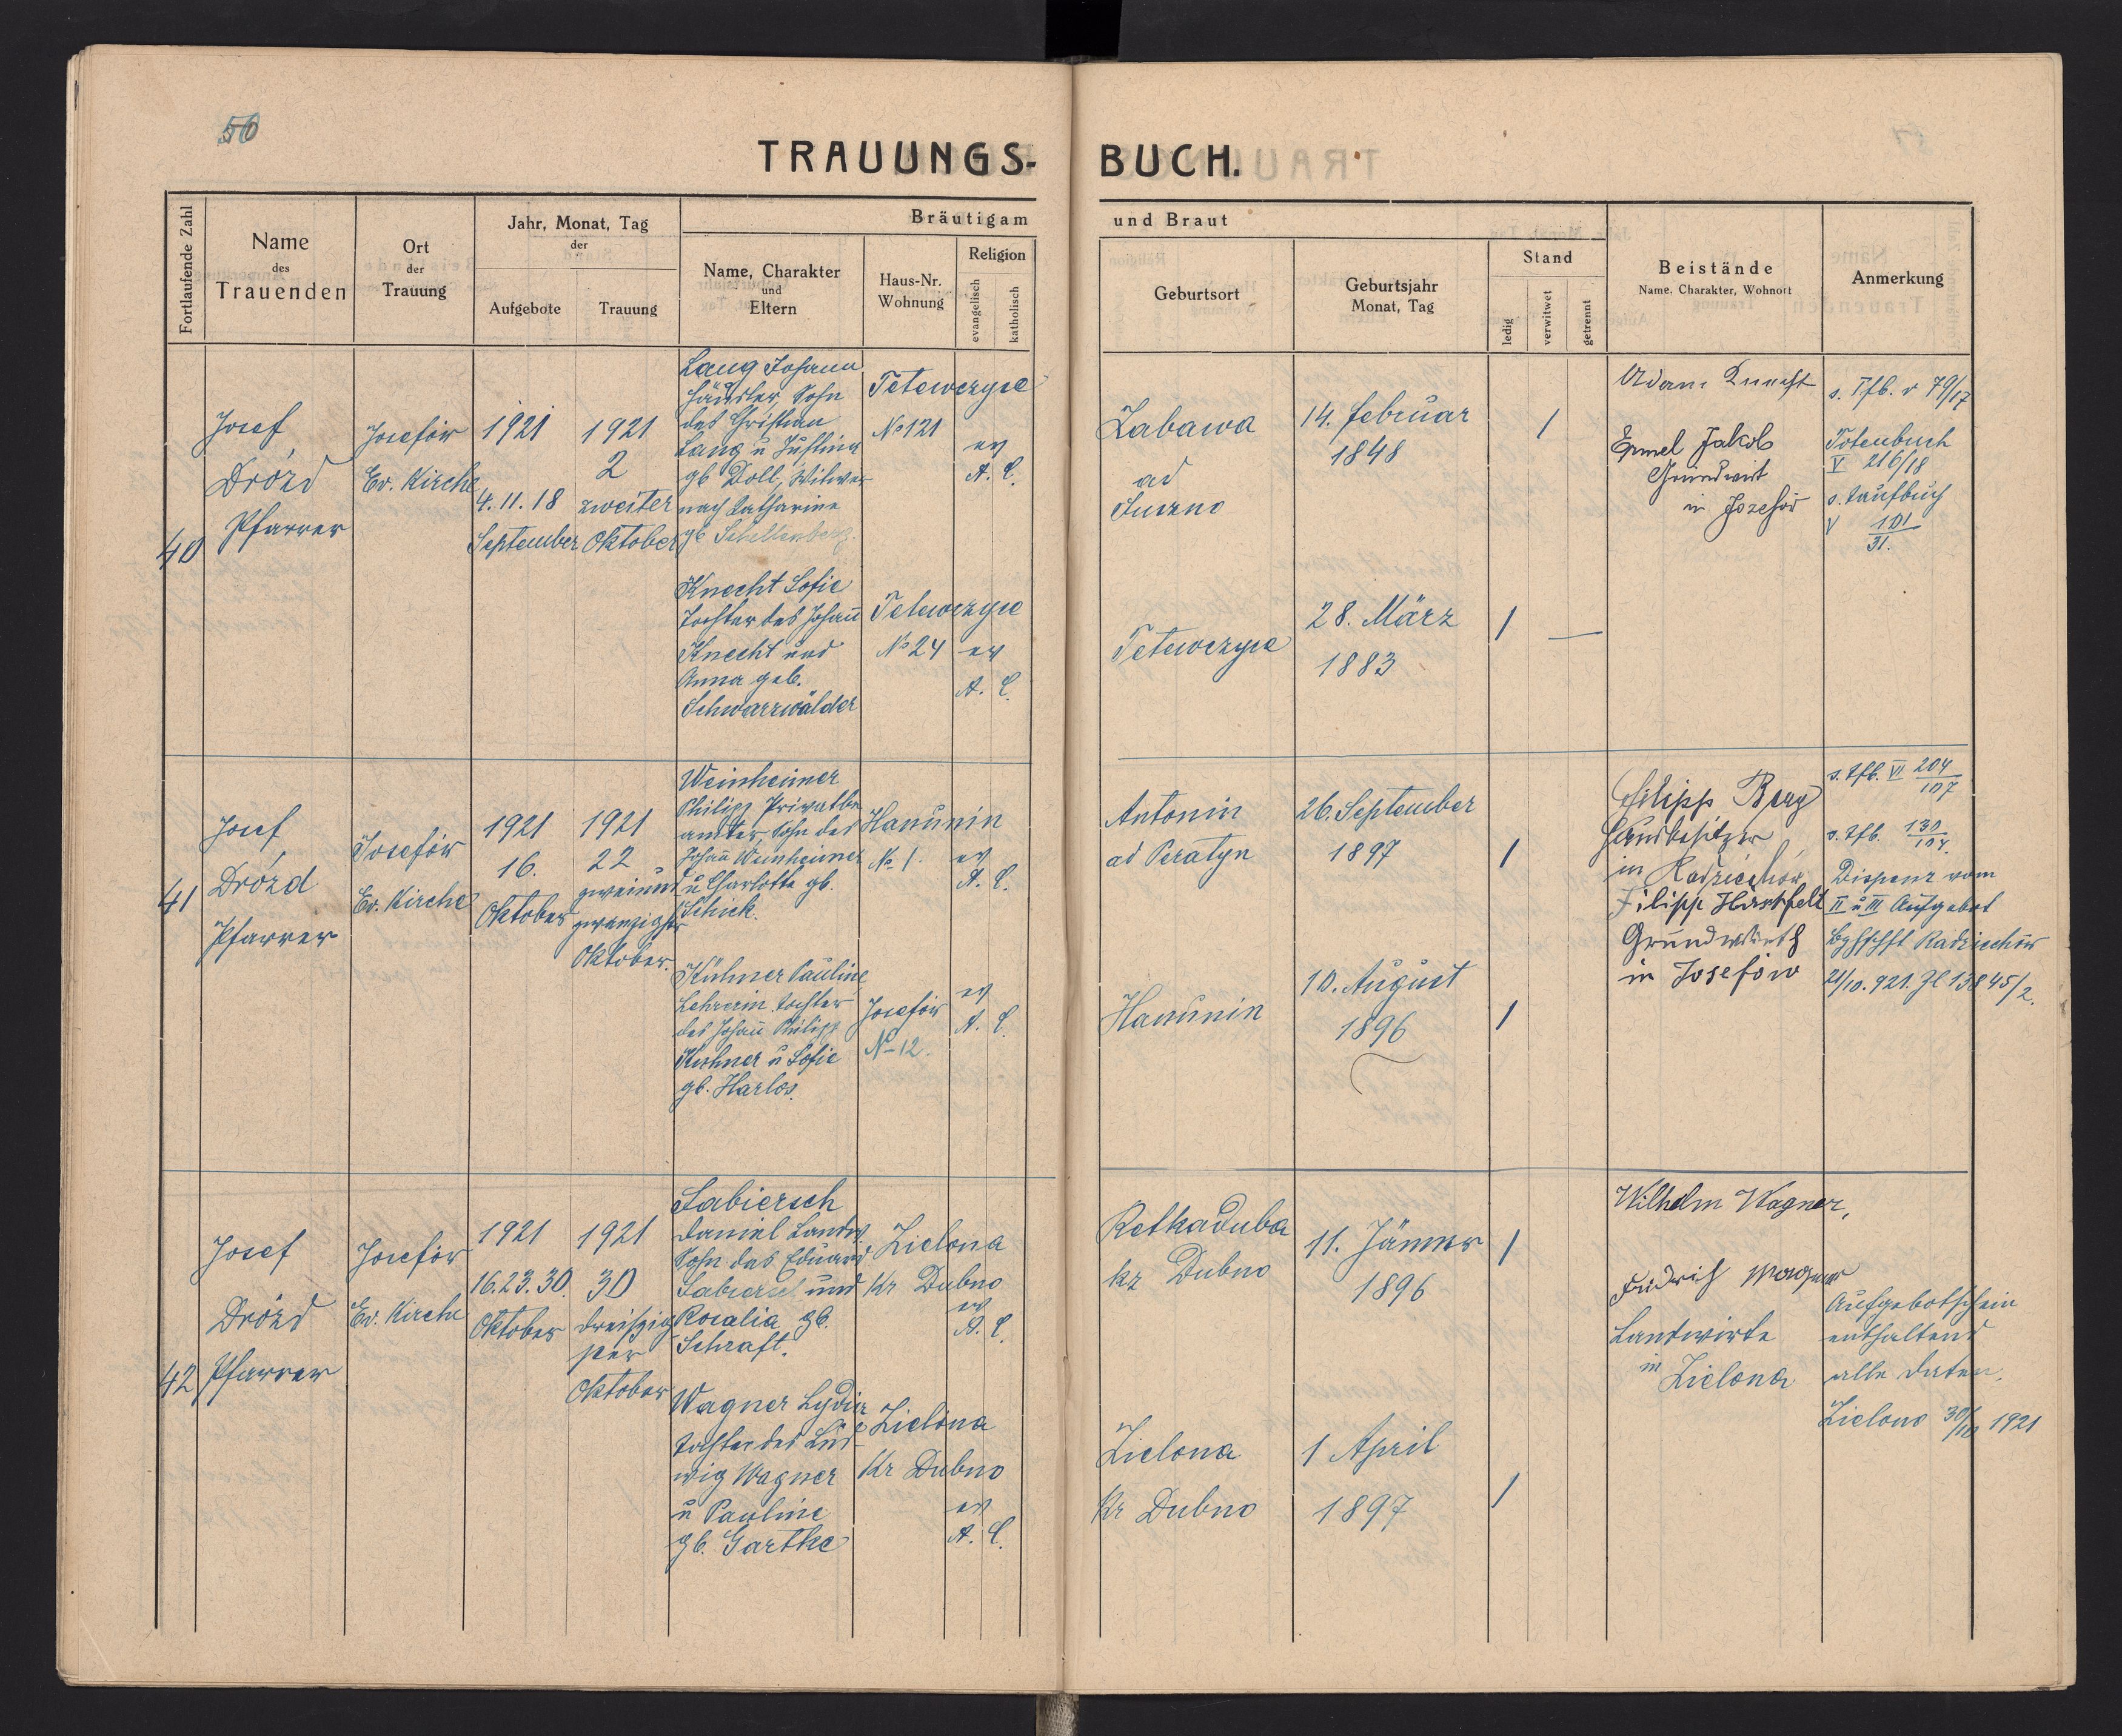 50
TRAUUNGS-BUCH.
Fortlaufende Zahl
Name
des
Trauenden
Ort
der
Trauung
Jahr, Monat, Tag
der
Aufgebote
Trauung
Bräutigam und Braut
Name, Charakter
und
Eltern
Haus-Nr.
Wohnung
Religion
evangelisch
katholisch
Geburtsort
Geburtsjahr
Monat, Tag
Stand
ledig
verwitwet
getrennt
Beistände
Name, Charakter, Wohnort
Anmerkung
40
Josef
Drózd
Pfarrer
Josefów
Ev. Kirche
1921
4. 11. 18
September
1921
2
zweiter
Oktober
Lang Johann
Häusler, Sohn
des Christian
Lang u Justina
gb Doll, Witwer
nach Katharina
gb Schellenberg.
Tetewczyce
No 121
ev
A. C.
Zabawa
ad
14. Februar
1848
/
Adam Knecht
Emel Jakob
Grundwirt
in Josefów
s. Tfb. v 79/17
Totenbuch
V 216/18
s. Taufbuch
V 101
31.
Knecht Sofie
Tochter des Johann
Knecht und
Anna geb.
Schwarzwälder
Tetewczyce
No 24
ev
A. C.
Tetewczyce
28. März
1883
/ —
41
Josef
Drózd
Pfarrer
Josefów
Ev. Kirche
1921
16.
Oktober
1921
22
zweiund
zwanzigster
Oktober.
Weinheimer
Philipp Privatbe
amter, Sohn des
Johann Weinheimer
u Charlotte gb.
Schick.
Hanunin
No 1.
ev
A. C.
Antonin
ad Peratyn
26. September
1897
/
Filipp Berg
Hausbesitzer
in Radziechów
Filipp Hartfelt
Grundwirth
in Josefów
s. Tfb. VI 204
107
s. Tfb. 130
104.
Dispens vom
II u III Aufgebot
Bzhschft Radziechów
21/10. 921. Zl 13845/2.
Kühner Pauline
Lehrerin, Tochter
des Johann Philipp
Kühner u Sofie
gb. Harlos.
Josefów
No 12.
ev
A. C.
Hanunin
10. August
1896
/
42
Josef
Drózd
Pfarrer
Josefów
Ev. Kirche
1921
16. 23. 30.
Oktober
1921
30
dreißig
ster
Oktober
Labiersch
Daniel Landw.
Sohn des Eduard
Labiersch und
Rosalia gb.
Schraft.
Zielona
Kr Dubno
ev
A. C.
Retkaduba
kr Dubno
11. Jänner
1896
/
Wilhelm Wagner,
Fridrich Wagner
Landwirte
in Zielona
Aufgebotschein
enthaltend
alle Daten.
Zielono 30/10 1921
Wagner Lydia
Tochter des Lud-
wig Wagner
u Pauline
gb. Gartke
Zielona
Kr Dubno
ev
A. C.
Zielona
Kr Dubno
1 April
1897
/